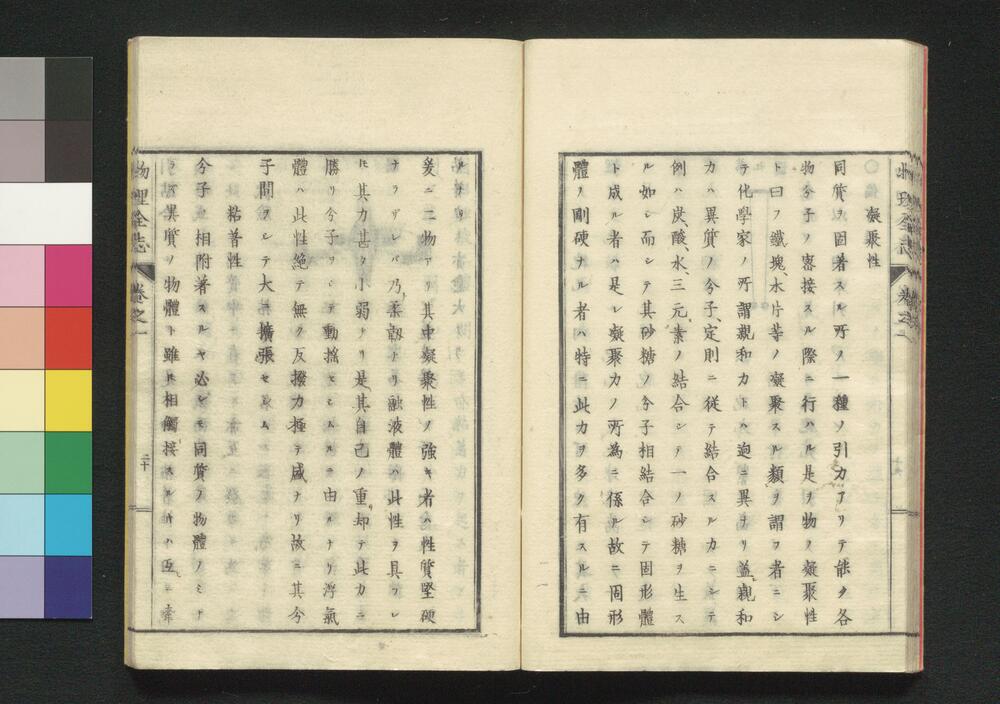 物理全志
卷之二
凝聚性
同質ヲ固著スル所ノ一種ノ引力アリテ能ク各
物分子ノ密接スル際ニ行ハル是ヲ物ノ凝聚性
ト曰フ鐵塊、水片等ノ凝聚スル類ヲ謂フ者ニシ
テ化學家ノ所謂親和力トハ迥ニ異ナリ蓋親和
力ハ異質ノ分子、定則ニ從テ結合スル力ニシテ
例ハ炭、酸、水、三元素ノ結合シテ一ノ砂糖ヲ生ス
ル如シ而シテ其砂糖ノ分子相結合シテ固形體
ト成ル者ハ是レ凝聚力ノ所為ニ係ル故ニ固形
體ノ剛硬ナル者ハ特ニ此力ヲ多ク有スルニ由
ルナリ
爰ニ二物アリ其中凝聚性ノ強キ者ハ性質堅硬
ナラザレバ乃柔韌ナリ融液體ハ此性ヲ具フレ
𪜈其力甚タ小弱ナリ是其自己ノ重却テ此力ニ
勝リ分子ヲシテ動搖セシムルニ由ルナリ浮氣
體ハ此性絶テ無ク反撥力極テ盛ナリ故ニ其分
子間ヲシテ大ニ擴張セシム
粘著性
分子ノ相附著スルヤ必シモ同質ノ物體ノミナ
ラズ異質ノ物體ト雖𪜈相觸接スル𪜈ハ互ニ牽
物理全志
卷之一
二十